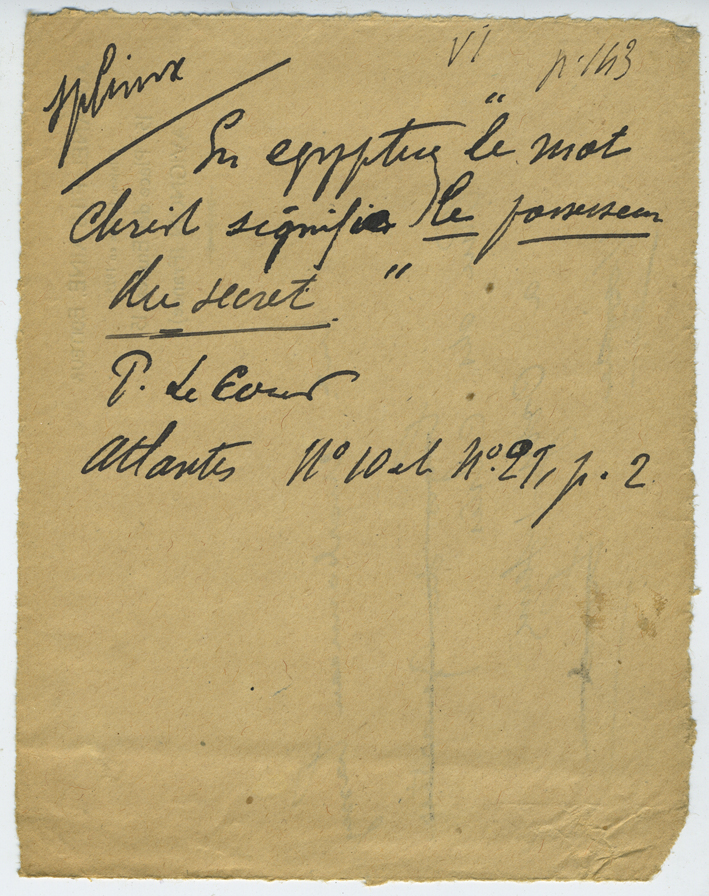 Sphinx
VI p. 143
En egyptien "le mot
Christ signifie le possesseur
du secret "
P. Le Cour
Atlantis N° 10 et N° 29, p. 2